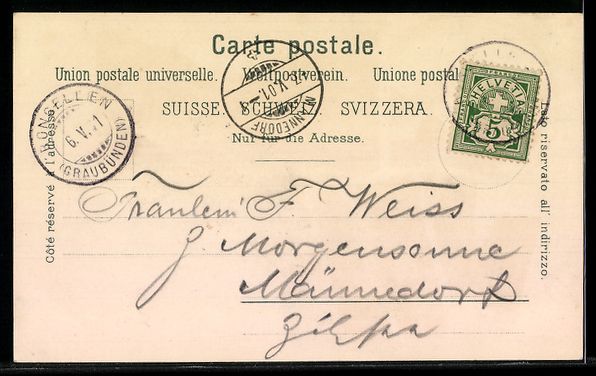 Carte postale.
Union postale universelle. Weltpostverein. Unione postal
SUISSE. SCHWEIZ. SVIZZERA.
Nur für die Adresse.
Côté réservé à l'adresse.
Lato riservato all' indirizzo.
RONGELLEN
6.V.
(GRAUBÜNDEN)
7.V.01.
MÄNNEDORF
HELVETIA
5
Fräulein F. Weiss
z. Morgensonne
Männedorf